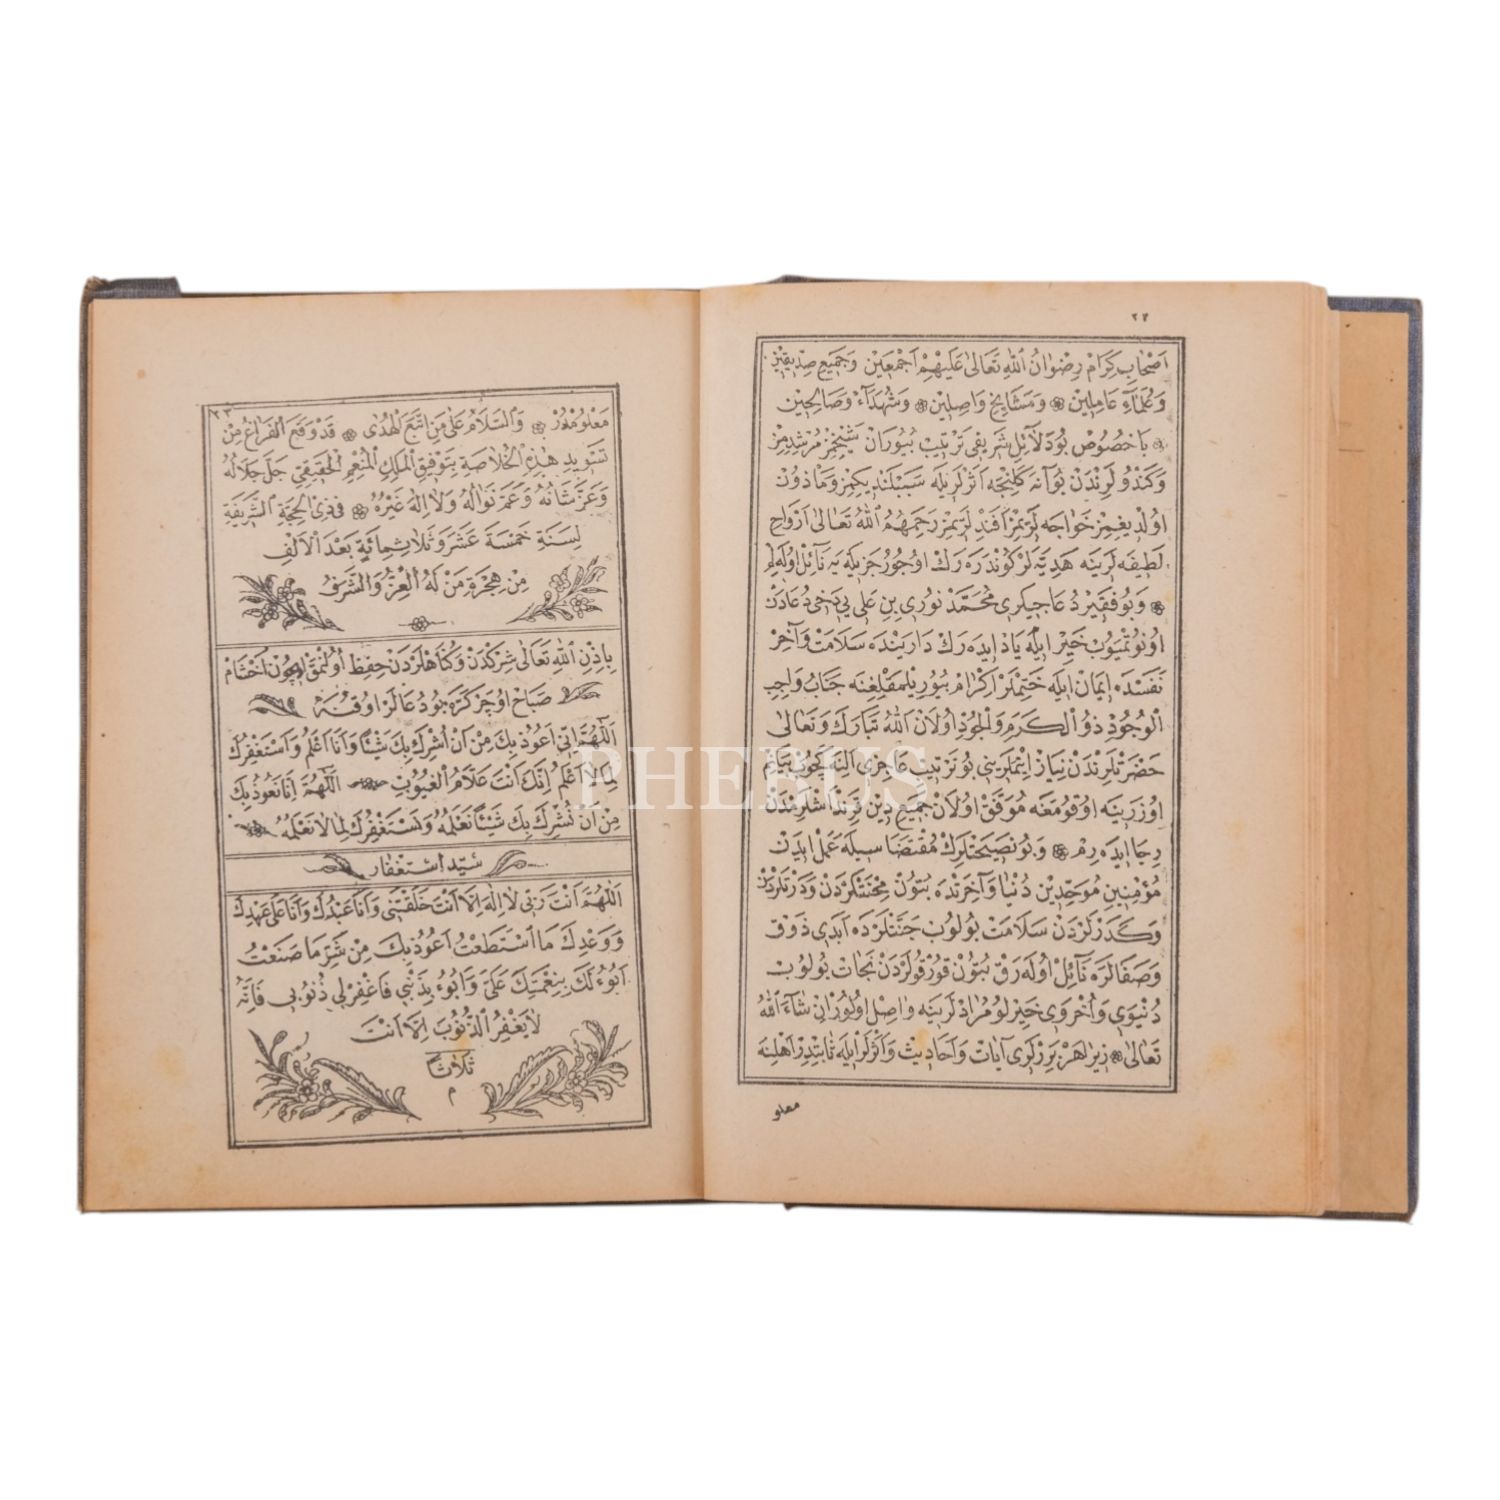 ٢٢
اَصْحَابِ كِرَامْ رِضْوَانُ اللّٰهِ تَعَالٰى عَلَيْهِمْ اَجْمَعِينْ وَجَمِيعِ صِدِّيقِينْ
وَعُلَمَآءِ عَامِلِينْ ۞ وَمَشَايِخِ وَاصِلِينْ ۞ وَشُهَدَآءْ وَصَالِحِينْ
۞ بَاخُصُوصْ بُودَلَآئِلِ شَرِيفِى تَرْتِيبْ بُيُورَانْ شَيْخِمِزْ مُرْشِدِمِزْ
وَكَنْدُولَرِنْدَنْ بُوآنَه كَلِنْجَه اَثَرْلَرِيلَه سَبَبْلَنْدِيكِمِزْ وَمَأْذُونْ
اُولْدِيغِمِزْ خَوَاجَه لَرِمِزْ اَفَنْدِلَرِيمِزْ رَحِمَهُمُ اللّٰهُ تَعَالٰى اَرْوَاحِ
لَطِيفَه لَرِينَه هَدِيَّه لَرْ كُونْدَرَه رَكْ اُوجُورِ جَزِيلَه يَه نَآئِلْ اُولَه لِمْ
۞ وَبُوفَقِيرْ دُعَاجِيكَزِى مُحَمَّدْ نُورِى بِنْ عَلِى يِى دَخِى دُعَادَنْ
اُونُوتْمَيُوبْ خَيْرْ اِيلَه يَادْ اِيدَه رَكْ دَارَيْنْدَه سَلَامَتْ وَآخِرْ
نَفَسْدَه اِيمَانْ اِيلَه خَتِمْلَرْ اِكْرَامْ بُيُورِيلْمَقْلِغِنَه جَنَابِ وَاجِبِ
الْوُجُودْ ذُو الْكَرَمِ وَالْجُودْ اُولَانْ اللّٰهُ تَبَارَكَ وَتَعَالٰى
حَضْرَتْلَرِنْدَنْ نِيَازْ اِيتْمَلَرِينِى بُوتَرْتِيبِ عَاجِزِى اَلِنَه كَچُوبْ
اُوزَرِينَه اُوقُومَغَه مُوَفَّقْ اُولَانْ جَمِيعِ دِينْ قَرِنْدَاشْلَرِمْدَنْ
رِجَا اِيدَه رِمْ ۞ وَبُونَصِيحَتْلَرِكْ مُقْتَضَاسِيلَه عَمَلْ اِيدَنْ
مُؤْمِنِينِ مُوَحِّدِينْ دُنْيَا وَآخِرَتْدَه بُتُونْ مِحْنَتْلَرْدَنْ وَدَرْتْلَرْدَنْ
وَكَدَرْلَرْدَنْ سَلَامَتْ بُولُوبْ جَنَّتْلَرْدَه اَبَدِى ذَوْقْ
وَصَفَالَرَه نَآئِلْ اُولَه رَقْ بُتُونْ قُورْقُولَرْدَنْ نَجَاتْ بُولُوبْ
دُنْيَوِى وَاُخْرَوِى خَيْرْلُو مُرَادْلَرِينَه وَاصِلْ اُولُورْ اِنْ شَآءَ اللّٰهُ
تَعَالٰى ۞ زِيرَا هَرْ بَرْلَرِى آيَاتْ وَاَحَادِيثْ وَاَثَرْلَرْ اِيلَه ثَابِتْدِرْ اَهْلِنَه
معلو
٢٣
مَعْلُومْدُرْ ۞ وَالسَّلَامُ عَلٰى مَنِ اتَّبَعَ الْهُدٰى ۞ قَدْ وَقَعَ الْفَرَاغُ مِنْ
تَسْوِيدِ هٰذِهِ الْخُلَاصَةِ بِتَوْفِيقِ الْمَلِكِ الْمُنْعِمِ الْحَقِيقِيِّ جَلَّ جَلَالُهُ
وَعَزَّ شَانُهُ وَعَمَّ نَوَالُهُ وَلَا اِلٰهَ غَيْرُهُ ۞ فِى ذِى الْحِجَّةِ الشَّرِيفَةِ
لِسَنَةِ خَمْسَةَ عَشَرَ وَثَلَاثِمِائَةٍ بَعْدَ الْاَلْفِ
مِنْ هِجْرَةِ مَنْ لَهُ الْعِزُّ وَالشَّرَفُ
بِاِذْنِ اللّٰهِ تَعَالٰى شِرْكْدَنْ وَكُنَاهْلَرْدَنْ حِفِظْ اُولُنْمَقْ اِيچُونْ اَخْشَامْ
صَبَاحْ اُوچَرْ كَرَّه بُو دُعَالَرْ اُوقُنَه
اَللّٰهُمَّ اِنِّى اَعُوذُ بِكَ مِنْ اَنْ اُشْرِكَ بِكَ شَيْئًا وَاَنَا اَعْلَمُ وَاَسْتَغْفِرُكَ
لِمَا لَا اَعْلَمُ اِنَّكَ اَنْتَ عَلَّامُ الْغُيُوبْ اَللّٰهُمَّ اِنَّا نَعُوذُ بِكَ
مِنْ اَنْ نُشْرِكَ بِكَ شَيْئًا نَعْلَمُهُ وَنَسْتَغْفِرُكَ لِمَا لَا نَعْلَمُهُ
سَيِّدِ اسْتِغْفَارْ
اَللّٰهُمَّ اَنْتَ رَبِّى لَا اِلٰهَ اِلَّا اَنْتَ خَلَقْتَنِى وَاَنَا عَبْدُكَ وَاَنَا عَلٰى عَهْدِكَ
وَوَعْدِكَ مَا اسْتَطَعْتُ اَعُوذُ بِكَ مِنْ شَرِّ مَا صَنَعْتُ
اَبُوءُ لَكَ بِنِعْمَتِكَ عَلَىَّ وَاَبُوءُ بِذَنْبِى فَاغْفِرْ لِى ذُنُوبِى فَاِنَّهُ
لَا يَغْفِرُ الذُّنُوبَ اِلَّا اَنْتَ
ثَلَاثًا
م
PHEBUS